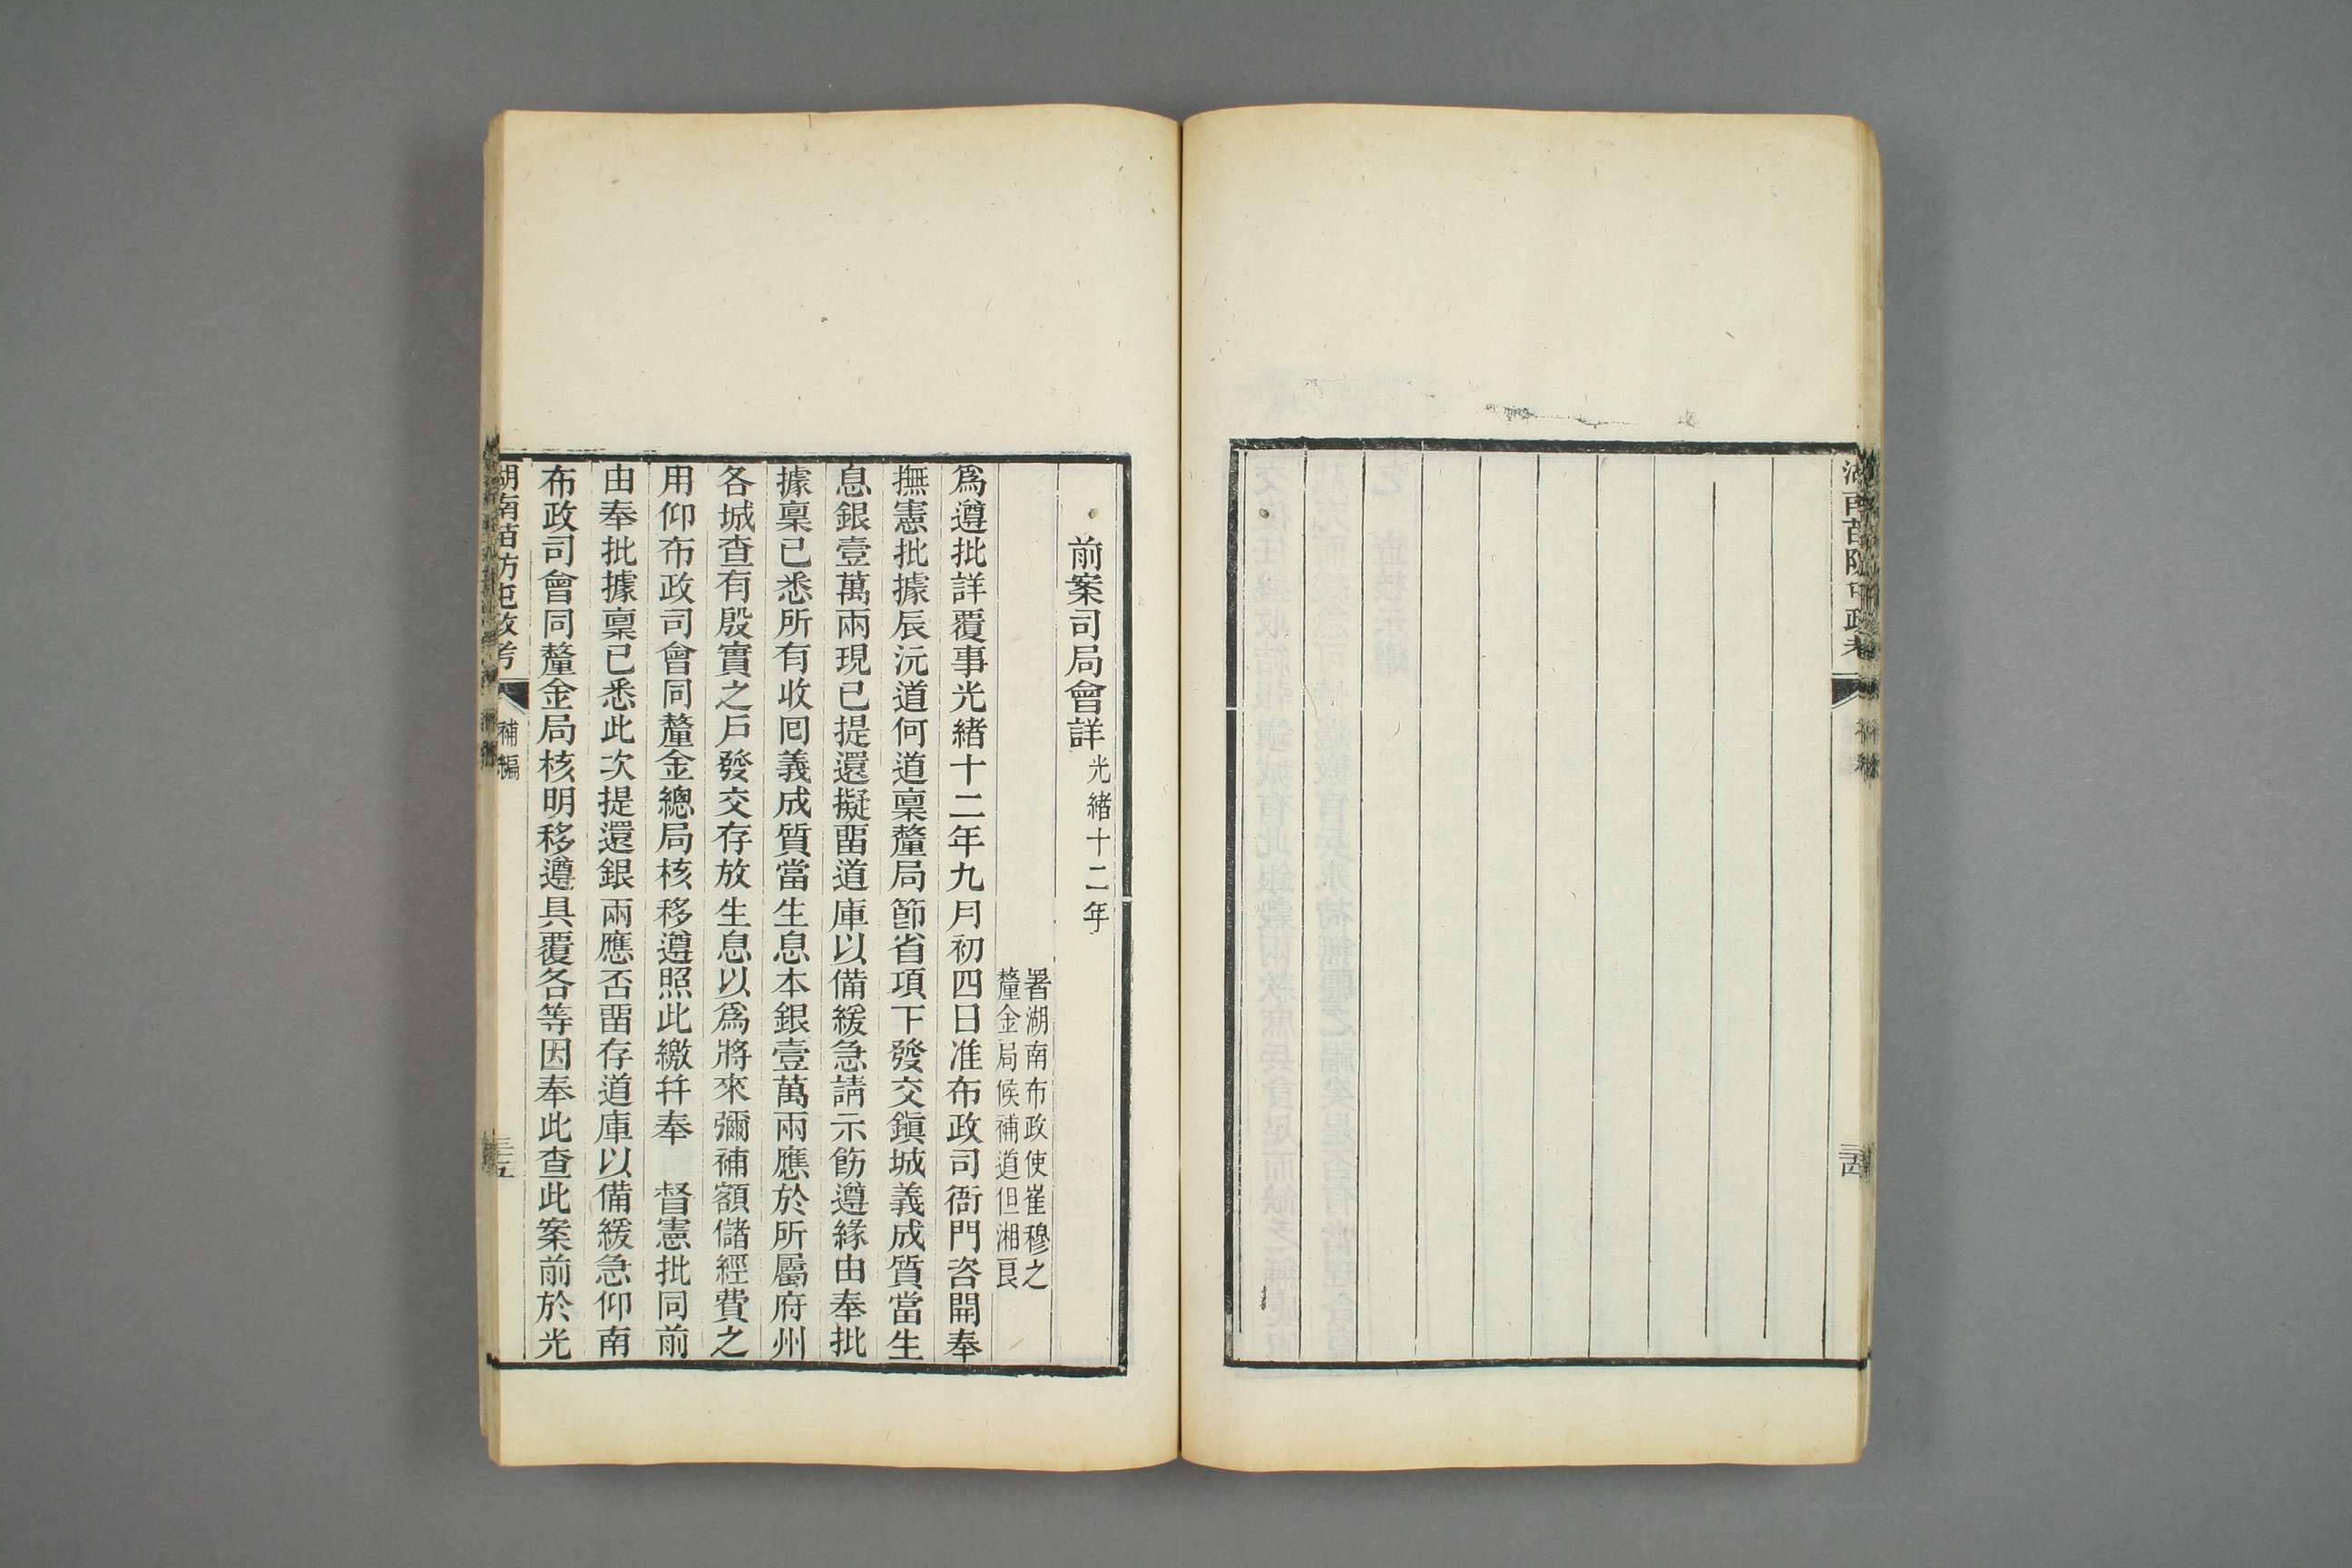 湖南苗防屯政考
補編
三十四
前案司局會詳光緒十二年
署湖南布政使崔穆之
釐金局候補道但湘良
爲遵批詳覆事光緒十二年九月初四日准布政司衙門咨開奉
撫憲批據辰沅道何道稟釐局節省項下發交鎭城義成質當生
息銀壹萬兩現已提還擬畱道庫以備緩急請示飭遵緣由奉批
據稟已悉所有收囘義成質當生息本銀壹萬兩應於所屬府州
各城查有殷實之戶發交存放生息以爲將來彌補額儲經費之
用仰布政司會同釐金總局核移遵照此繳幷奉 督憲批同前
由奉批據稟已悉此次提還銀兩應否畱存道庫以備緩急仰南
布政司會同釐金局核明移遵具覆各等因奉此查此案前於光
湖南苗防屯政考
補編
三十五